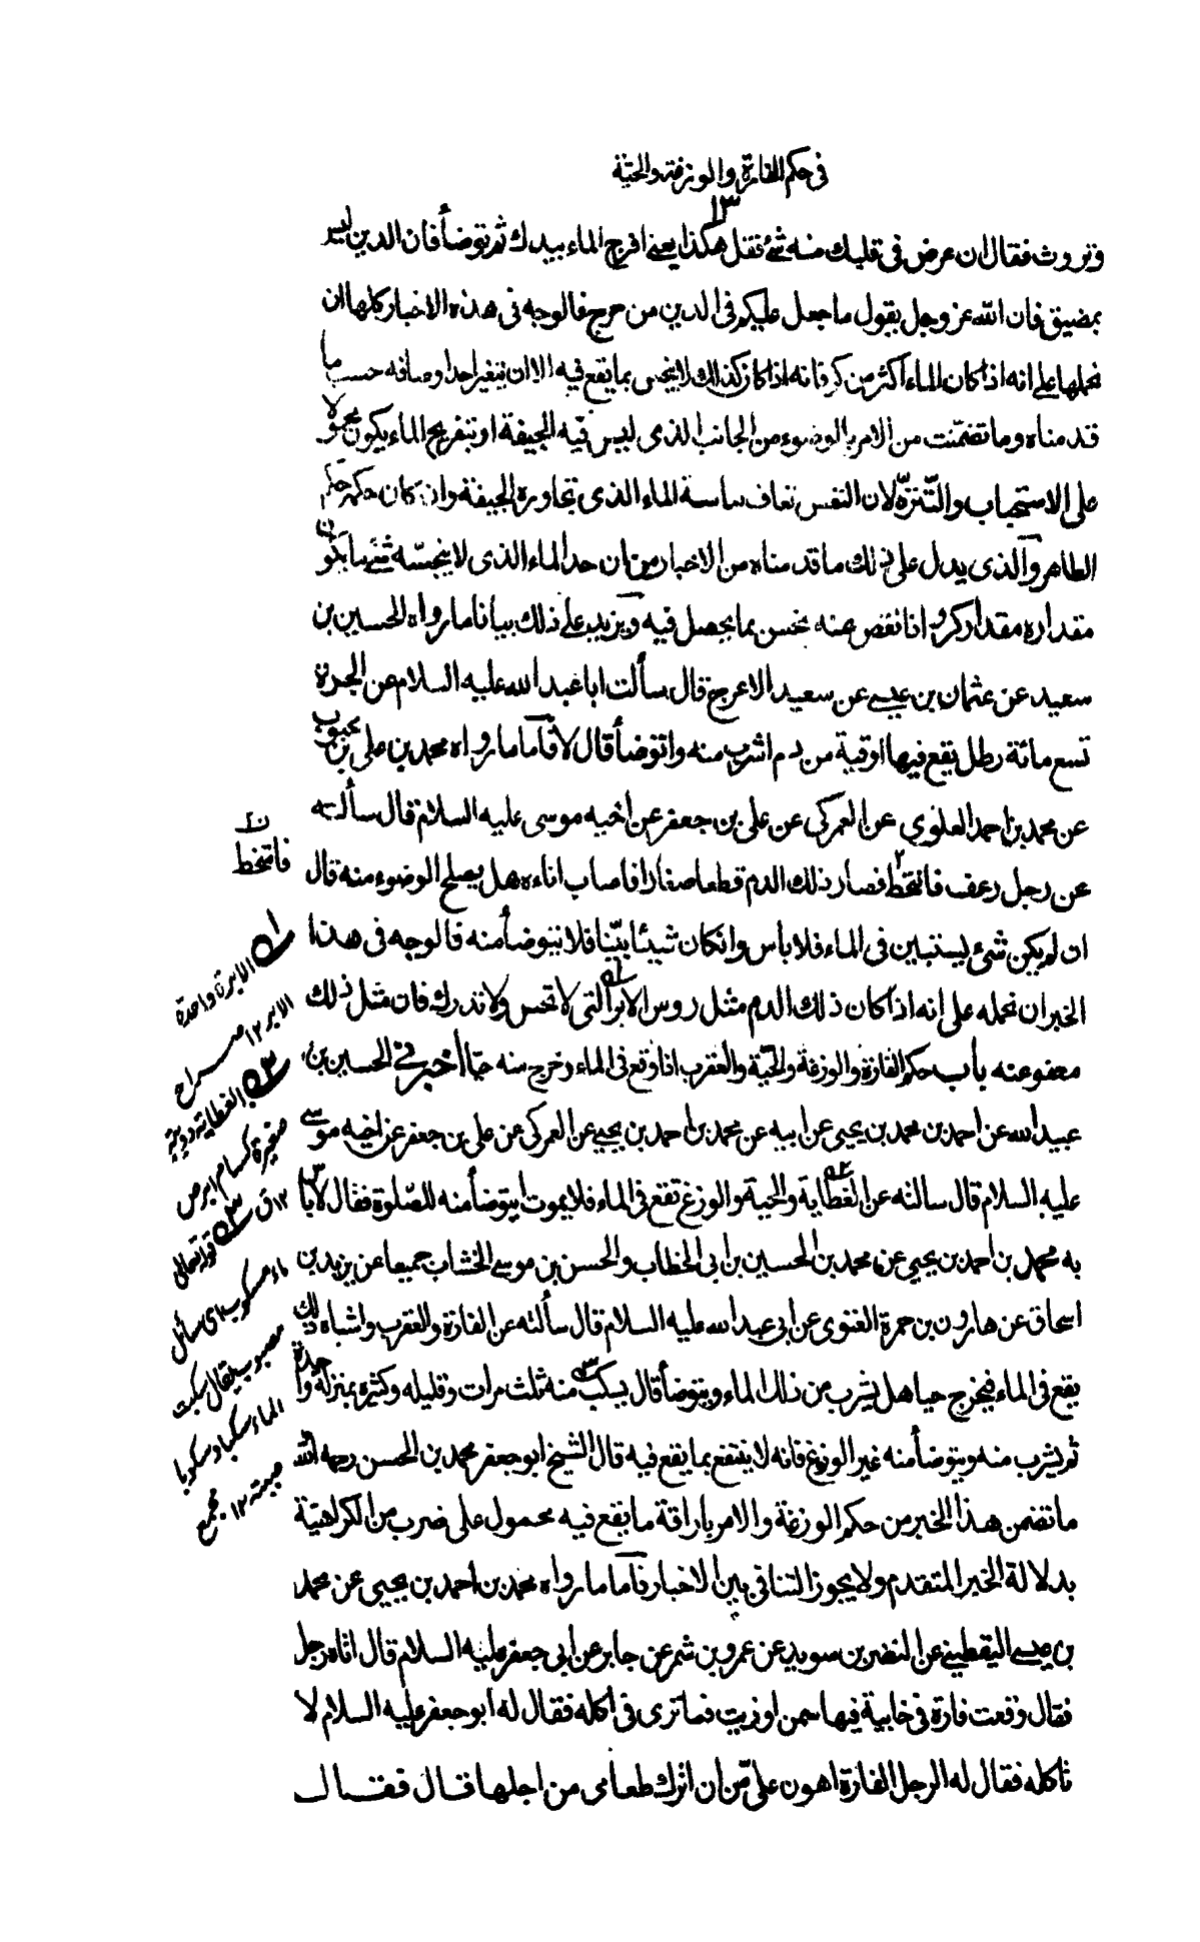 في حكم الفارة والوزغة والحية
١٣
وتروث فقال ان عرض في قلبك منه شئ فقل هكذا يعنى افرج الماء بيدك ثم توضأ فان الدين ليس
بمضيق فان الله عز وجل يقول ما جعل عليكم في الدين من حرج فالوجه في هذه الاخبار كلها ان
نحملها على انه اذا كان الماء اكثر من كر فانه اذا كان كذلك لا ينجس بما يقع فيه الا ان يتغير احد اوصافه حسب ما
قدمناه وما تضمنت من الامر بالوضوء من الجانب الذى ليس فيه الجيفة او بتفريج الماء يكون محمولا
على الاستحباب والتنزه لان النفس تعاف مماسة الماء الذى تجاوره الجيفة وان كان حكمه حكم
الطاهر والذى يدل على ذلك ما قدمناه من الاخبار من ان حد الماء الذى لا ينجسه شئ ما يكون
مقداره مقدار كر واذا نقص عنه نجس بما يحصل فيه ويزيد على ذلك بيانا ما رواه الحسين بن
سعيد عن عثمان بن عيسى عن سعيد الاعرج قال سألت ابا عبد الله عليه السلام عن الجرة
تسع مائة رطل يقع فيها اوقية من دم اشرب منه واتوضأ قال لا فأما ما رواه محمد بن على بن محبوب
عن محمد بن احمد العلوي عن العمركى عن على بن جعفر عن اخيه موسى عليه السلام قال سألته
عن رجل رعف فامتخط فصار ذلك الدم قطعا صغارا فاصاب اناءه هل يصلح الوضوء منه قال
ان لم يكن شئ يستبين في الماء فلا باس وان كان شيئا بيّنا فلا يتوضأ منه فالوجه في هذا
الخبر ان نحمله على انه اذا كان ذلك الدم مثل روس الابر التى لا تحس ولا تدرك فان مثل ذلك
معفو عنه باب حكم الفارة والوزغة والحيّة والعقرب اذا وقع في الماء وخرج منه حيّا أخبرنى الحسين بن
عبيد الله عن احمد بن محمد بن يحيى عن ابيه عن محمد بن احمد بن يحيى عن العمركى عن على بن جعفر عن اخيه موسى
عليه السلام قال سالته عن العظاية والحية والوزغ تقع في الماء فلا يموت ايتوضأ منه للصّلوة فقال لا باس
به محمد بن احمد بن يحيى عن محمد بن الحسين بن ابى الخطاب والحسن بن موسى الخشاب جميعا عن يزيد بن
اسحاق عن هارون بن حمزة الغنوى عن ابى عبد الله عليه السلام قال سألته عن الفارة والعقرب واشباه ذلك
يقع في الماء فيخرج حيا هل يشرب من ذلك الماء ويتوضأ قال يسكب منه ثلث مرات وقليله وكثيره بمنزلة واحدة
ثم يشرب منه ويتوضأ منه غير الوزغ فانه لا ينتفع بما يقع فيه قال الشيخ ابو جعفر محمد بن الحسن رحمه الله
ما تضمن هذا الخبر من حكم الوزغة والامر باراقة ما يقع فيه محمول على ضرب من الكراهيّة
بدلالة الخبر المتقدم ولا يجوز التنافي بين الاخبار فأما ما رواه محمد بن احمد بن يحيى عن محمد
بن عيسى اليقطينى عن النضر بن سويد عن عمرو بن شمر عن جابر عن ابى جعفر عليه السلام قال اتاه رجل
فقال وقعت فارة في خابية فيها سمن او زيت فما ترى في اكله فقال له ابو جعفر عليه السلام لا
تاكله فقال له الرجل الفارة اهون علىّ من ان اترك طعامى من اجلها قال فقال
فامتخط
الابرة واحدة
الابر ١٢ صراح
العظاية دويبة
صغيرة كسام ابرص
١٢ ق
قوله تعالى
ماء مسكوب اى سائل
مصبوب يقال سكبت
الماء سكبا وسكوبا
صببته ١٢ مجمع